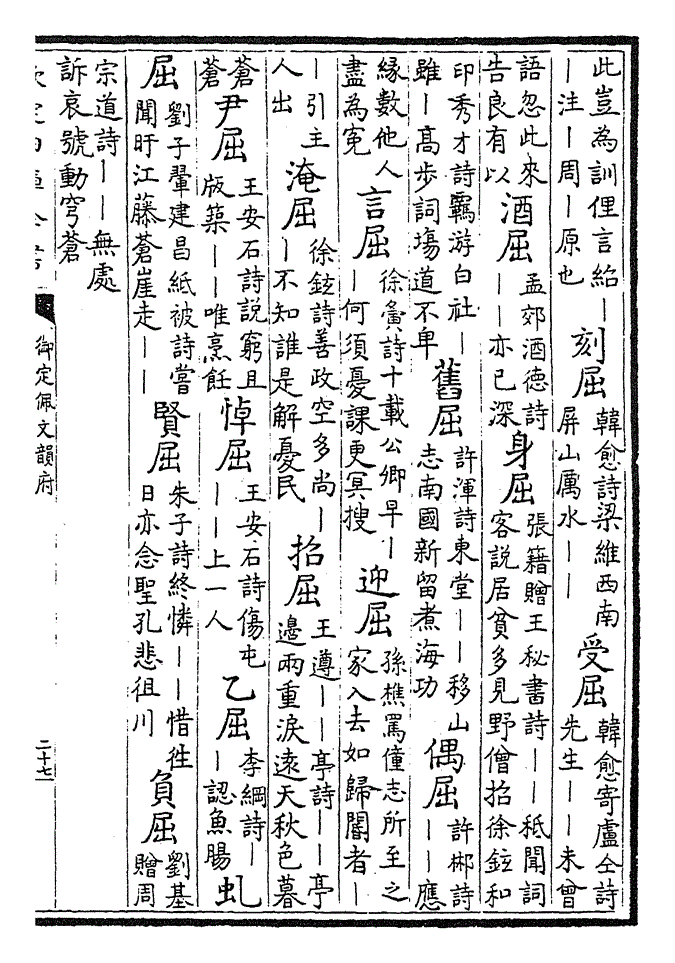 此豈為訓俚言紿｜｜注｜周｜原也 刻屈 韓愈詩梁維西南屏山厲水｜｜ 受屈 韓愈寄盧仝詩先生｜｜未曾
語忽此來告良有以 酒屈 孟郊酒德詩｜｜亦已深 身屈 張籍贈王秘書詩｜｜秪聞詞客說居貧多見野僧招徐鉉和
印秀才詩羈游白社｜雖｜高步詞場道不卑 舊屈 許渾詩東堂｜｜移山志南國新留煮海功 偶屈 許郴詩｜｜應
緣數他人盡為寃 言屈 徐夤詩十載公卿早｜｜何須憂課更冥搜 迎屈 孫樵罵僮志所至之家入去如歸閽者｜
｜引主人出 淹屈 徐鉉詩善政空多尚｜｜不知誰是解憂民 招屈 王遵｜｜亭詩｜｜亭邊兩重淚遠天秋色暮
蒼蒼 尹屈 王安石詩說窮且版築｜｜唯烹飪 悼屈 王安石詩傷屯｜｜上一人 乙屈 李綱詩｜｜認魚腸 虬
屈 劉子翬建昌紙被詩嘗聞盱江藤蒼崖走｜｜ 賢屈 朱子詩終憐｜｜惜往日亦念聖孔悲徂川 負屈 劉基贈周
宗道詩｜｜無處訴哀號動穹蒼
欽定四庫全書
御定佩文韻府
二十七